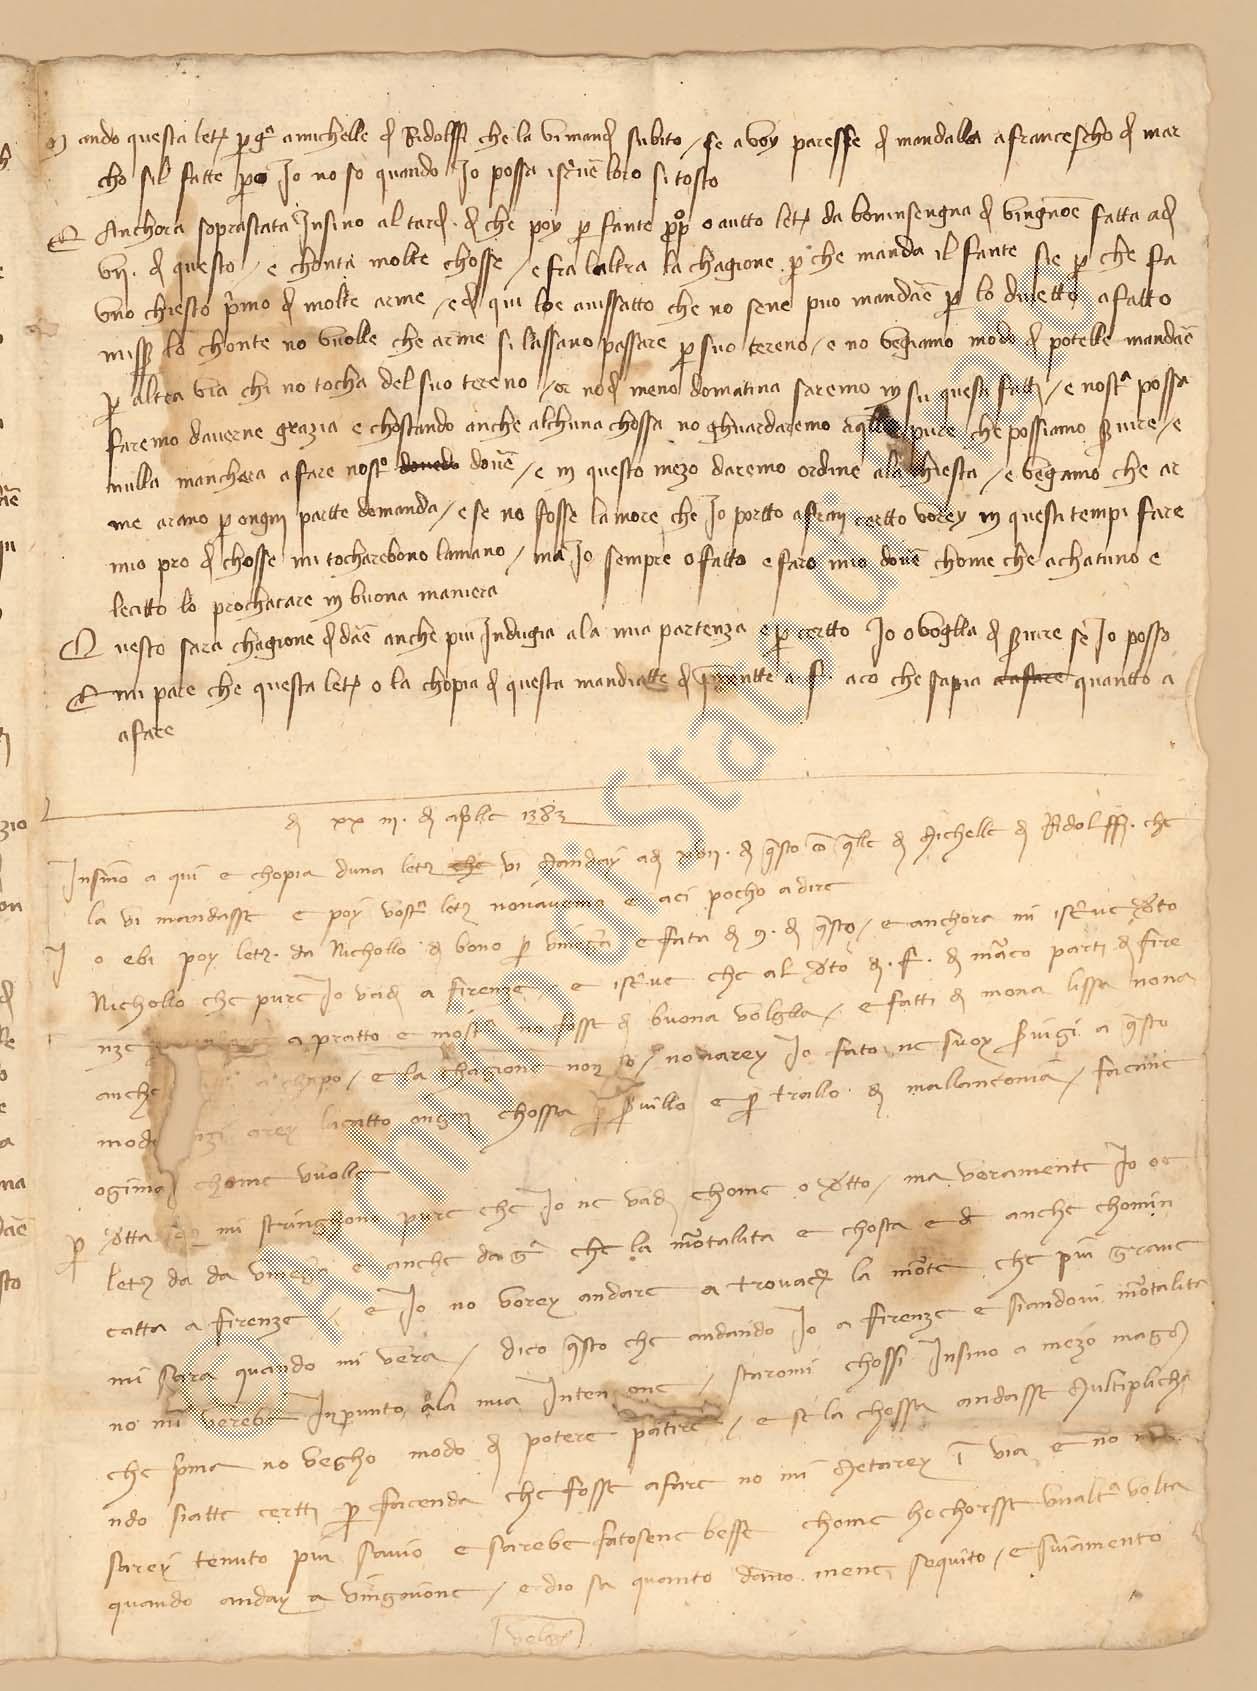 M ando questa letᵃ p̱ gᵃ a michelle đ Ridolffi che la vi mandj subito / se a voy paresse đ mandalla a francescho đ mar
cho sil fatte p̱o Io no so quando Io possa iscrive loro si tosto
E Anchora soprastata Insino al tardj . đ che poy p̱ fante p̱op̱o o autto letᵃ da boninsengna đ vingnōe fatta adj
vij . đ questo / e chonta molte chosse / e fra laltra la chagione p̱ che manda il fante sie p̱ che fa
uno chiesto p̱mo đ molte arme / e đ qui loe avissatto che no sene puo mandare p̱ lo divetto a fatto
miss̱ lo chonte no vuolle che arme si lassano passare p̱ suo tereno / e no vegiamo modo đ potelle mandare
p̱ altra via chi no tocha del suo tereno / or nođ meno domatina saremo in su questi fatti / e nostᵃ possa
faremo daverne grazia e chostando anche alchuna chossa no ghuardaremo pure che possiamo s̱vire / e
nulla manchera a fare nostᵒ dovedo dovē / e in questo mezo daremo ordine ala chiesta / e vegiamo che ar
me arano p̱ ongni partte domanda / e se no fosse lamore che Io portto a fran certto vorey in questi tempi fare
mio pro đ chosse mi tocharebono lamano / ma Io sempre o fatto e faro mio dovē chome che a chatuno e
lecitto lo prochacare in buona maniera
Q uesto sara chagione đ dāe anche piu Indugia a la mia partenza e p̱ certto Io o voglla đ s̱vire se Io posso
E mi pare che questa letᵃ o la chopia đ questa mandiatte đ p̱sentte a f. aco che sapia a afare quantto a
afare
đ xx iij . đ aplle 1383
Insino a qui e chopia duna letᵃ che vi Manday adj xvij . đ q̱sto co q̱lle đ Michelle đ Ridolffi . che
la vi mandasse e poy vostᵃ letᵃ nonavemo e aci pocho a dire
I o ebi poy letᵃ . da Nichollo đ bono p̱ vinegia e fata đ 9 . đ q̱sto / e anchora mi iscrive đto
Nichollo che pure Io vadj a firenze / e iscrive che al đto đ . f . đ marco parti đ fire
nze a pratto e mostᵃ no fosse đ buona voglla / e fatti đ mona lissa nona
anche chapo / e la chagione non so / no narey Io fato ne suoy s̱vigi a q̱sto
modo orey lacatto ongni chossa p̱ s̱villo e p̱ trallo đ mallanconia / facane
ogima chome vuolle
p̱ đtta letᵃ mi stringhono pure che Io ne vadj chome o đtto / ma veramente Io oe
letᵃ da da vinegia e anche da gᵃ che la mortalita e chosta e đ anche chomin
catta a firenze / e Io no vorey andare a trovare la morte che piu grave
mi sara quando mi vera / dico q̱sto che andando Io a firenze e siandovi mortalita
no mi verebe In punto ala mia Inten one / staromi chossi Insino a mezo magᵒ
che p̱ma no vegho modo đ potere patire / e se la chossa andasse Multiplicha
ndo siatte certti p̱ facenda che fosse afare no mi Metarey ī via e no
sarey tenuto piu savio e sarebe fatosene besse chome hochorsse unaltᵃ volta
quando anday a vingnione / e dio sa quanto dano mene sequito / e sviamento
volgi
© Archivio di Stato di Prato